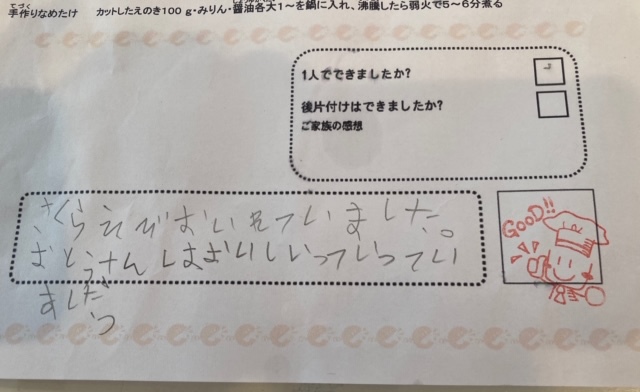 手作りなめたけ カットしたえのき100g・みりん・醤油各大1〜を鍋に入れ、沸騰したら弱火で5〜6分煮る
てづく
1人でできましたか?
後片付けはできましたか?
ご家族の感想
さくらえびおいれていました。
おとうさんはおいしいっていってい
ました。
GOOD!!